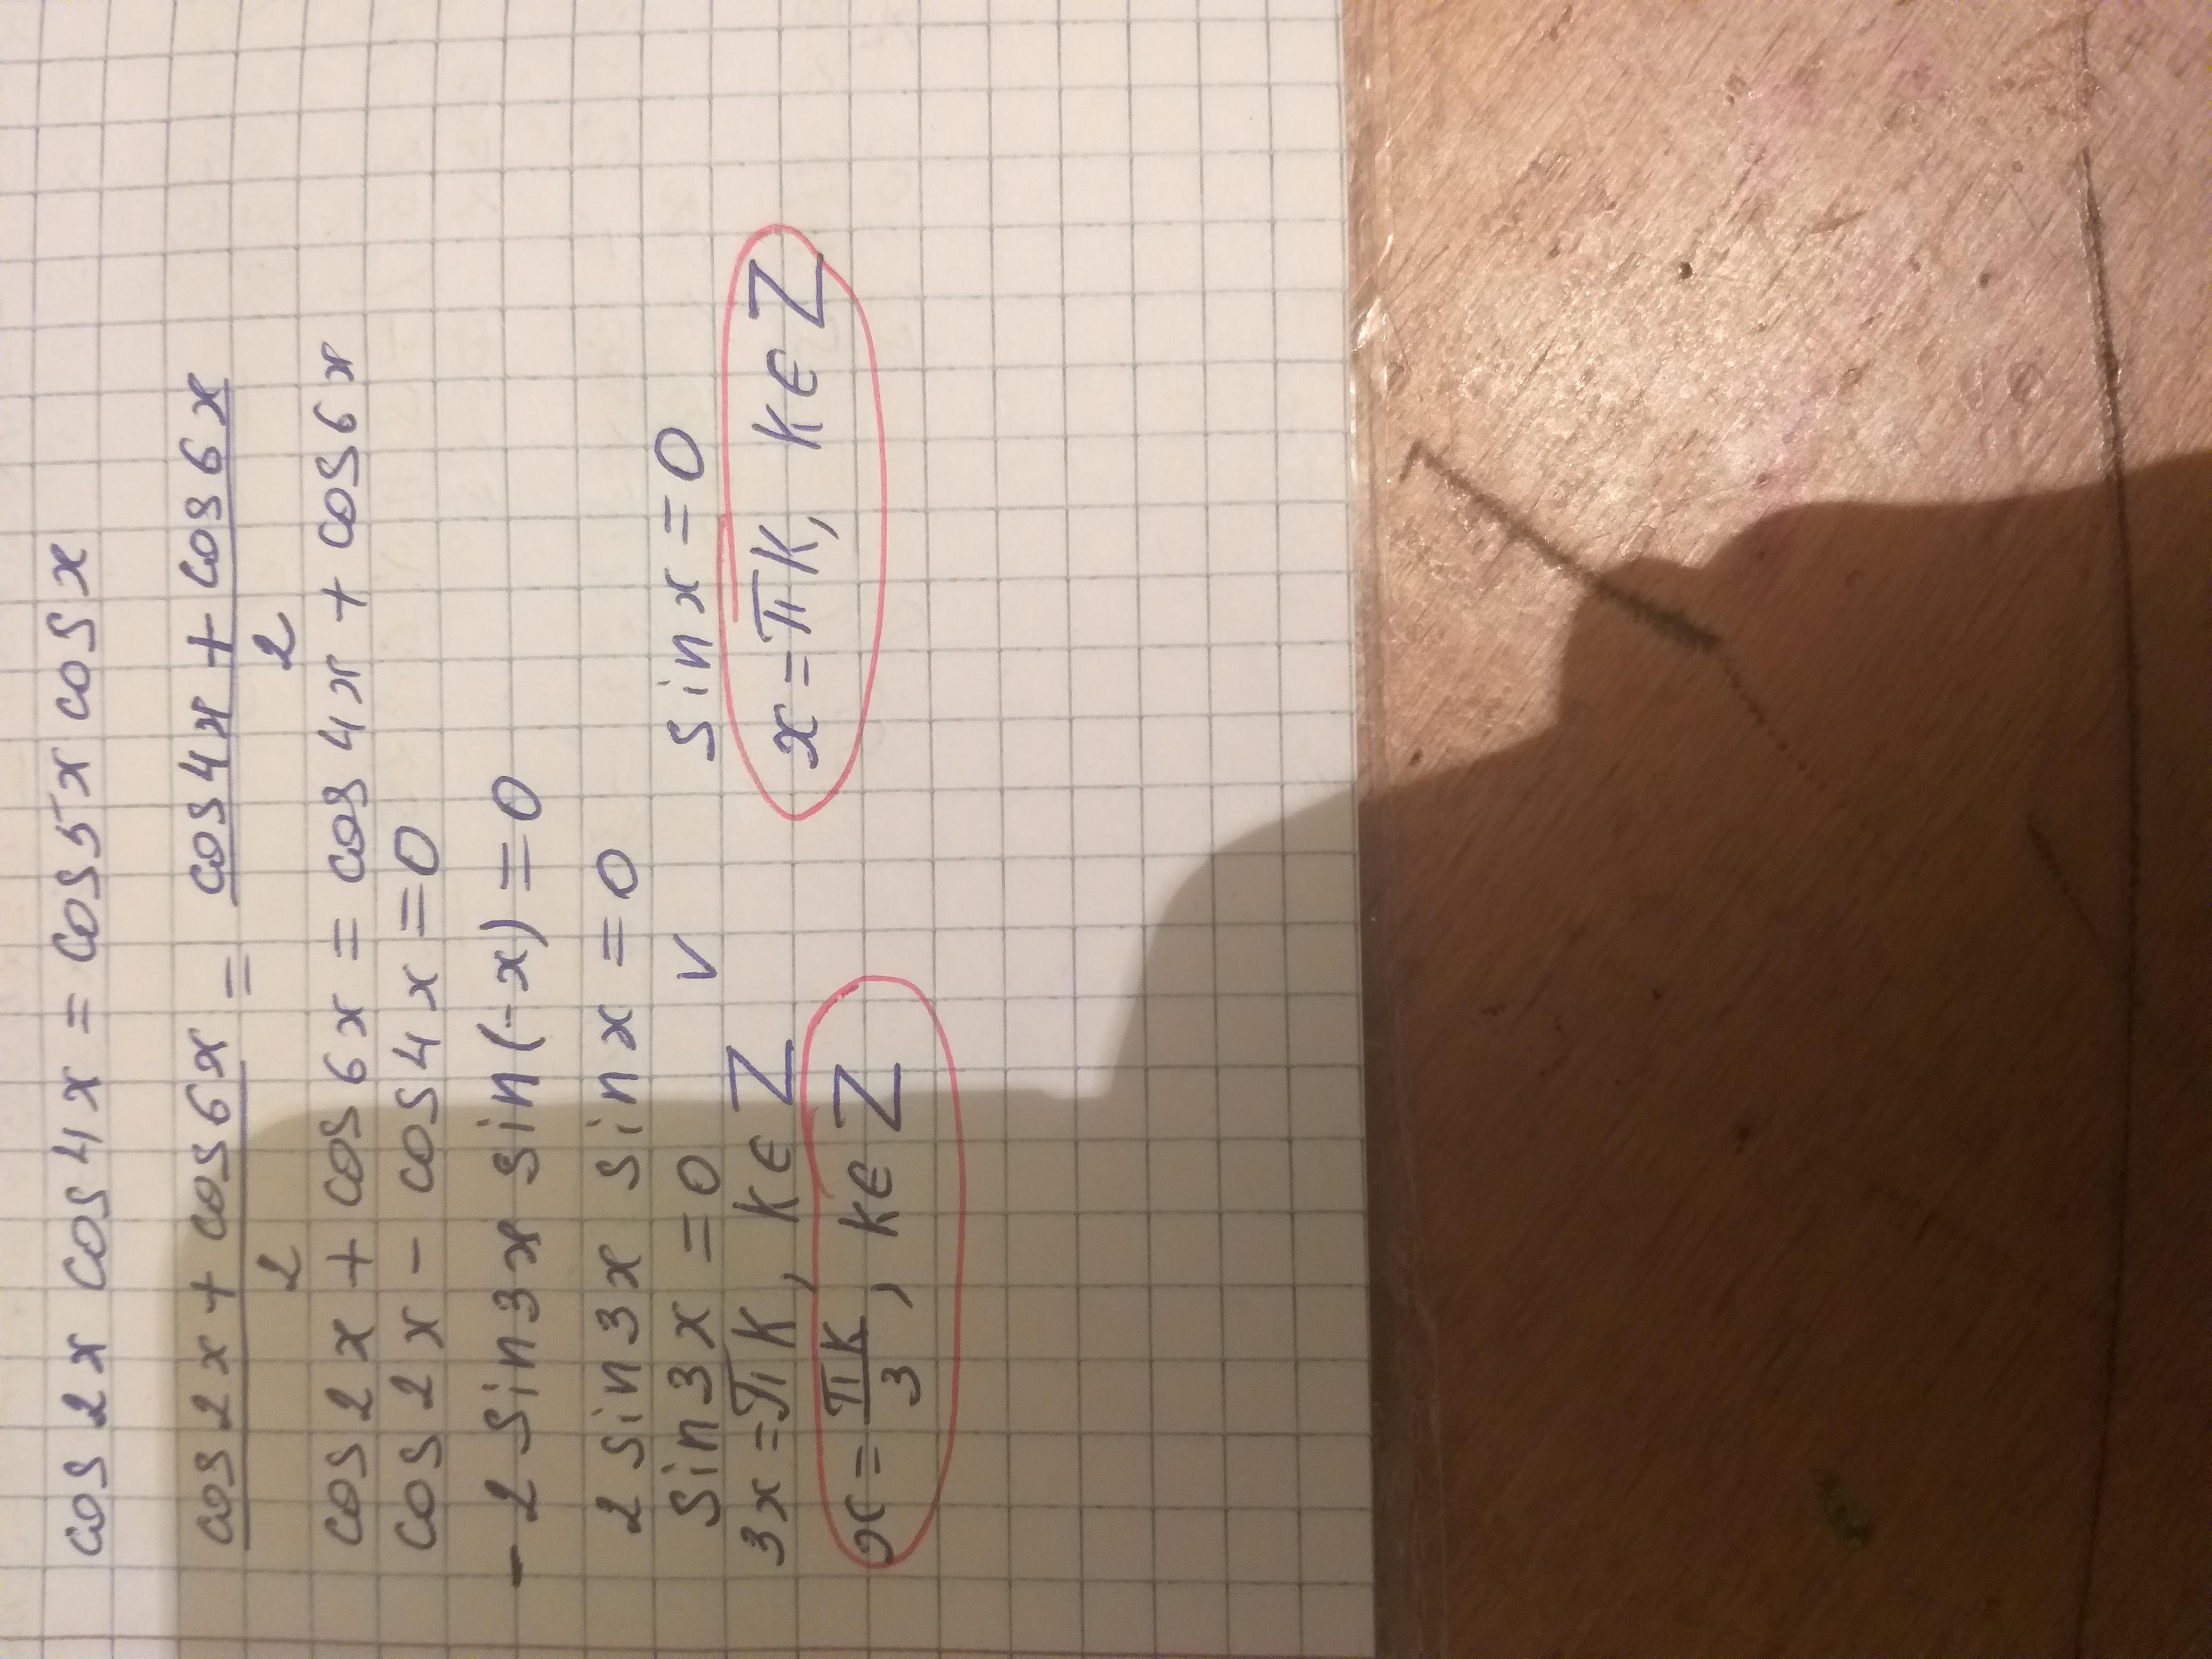 cos 2x cos 4x = cos 5x cos x
cos 2x + cos 6x / 2 = cos 4x + cos 6x / 2
cos 2x + cos 6x = cos 4x + cos 6x
cos 2x - cos 4x = 0
- 2 sin 3x sin (-x) = 0
2 sin 3x sin x = 0
sin 3x = 0 v sin x = 0
3x = πk, k ∈ Z x = πk, k ∈ Z
x = πk / 3, k ∈ Z